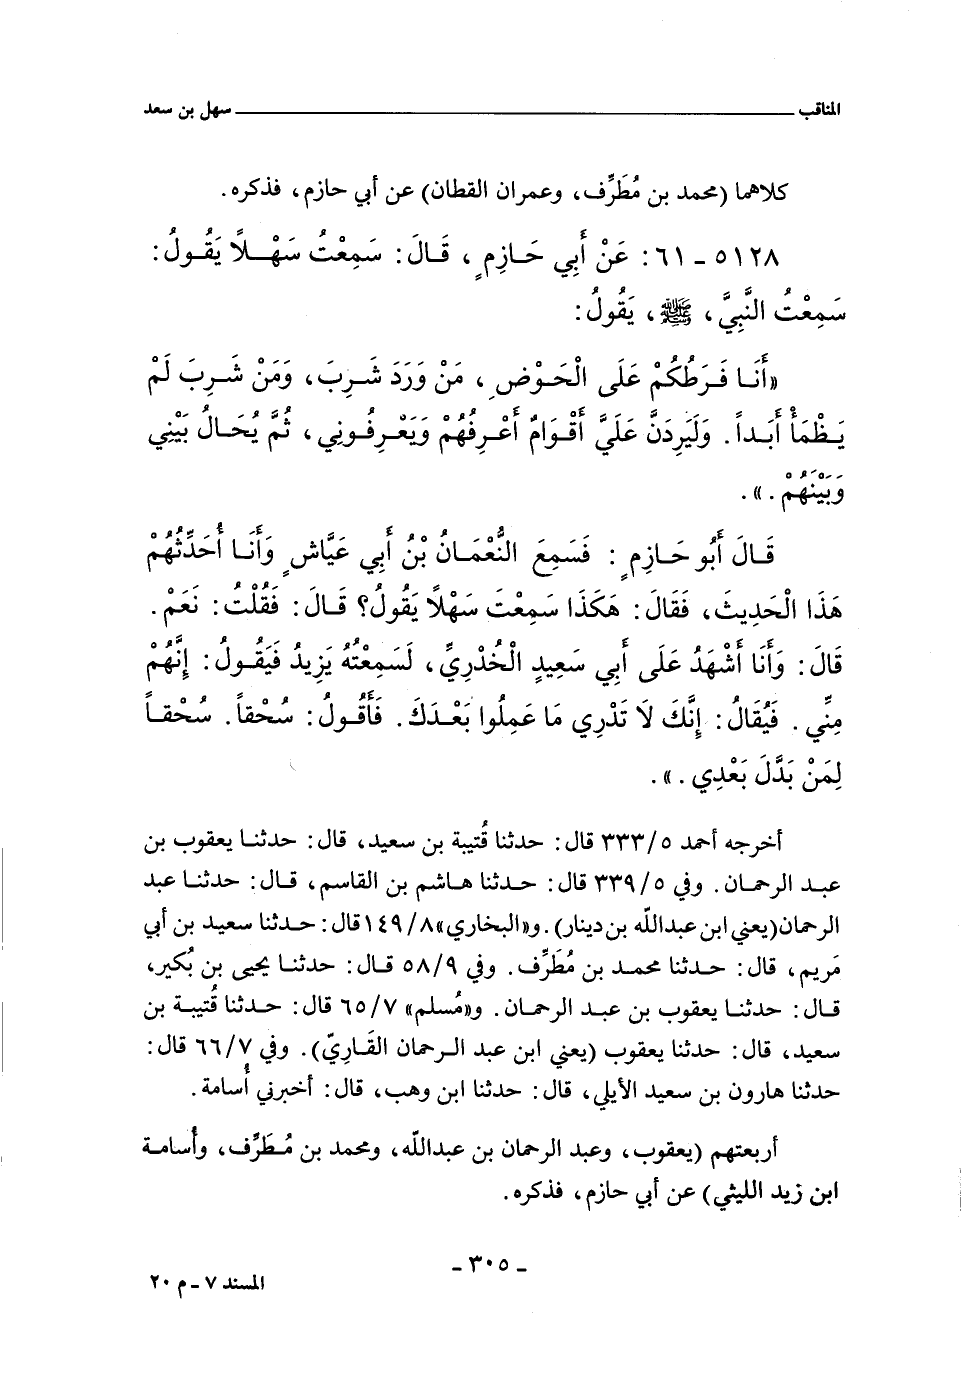 المناقب ــــــــــ سهل بن سعد
كلاهما (محمد بن مُطَرِّف، وعمران القطان) عن أبي حازم، فذكره.
٥١٢٨ ـ ٦١: عَنْ أَبِي حَازِمٍ، قَالَ: سَمِعْتُ سَهْلاً يَقُولُ:
سَمِعْتُ النَّبِيَّ، ﷺ، يَقُولُ:
«أَنَا فَرَطُكُمْ عَلَى الْحَوْضِ، مَنْ وَرَدَ شَرِبَ، وَمَنْ شَرِبَ لَمْ
يَظْمَأْ أَبَداً. وَلَيَرِدَنَّ عَلَيَّ أَقْوَامٌ أَعْرِفُهُمْ وَيَعْرِفُونِي، ثُمَّ يُحَالُ بَيْنِي
وَبَيْنَهُمْ.».
قَالَ أَبُو حَازِمٍ: فَسَمِعَ النُّعْمَانُ بْنُ أَبِي عَيَّاشٍ وَأَنَا أُحَدِّثُهُمْ
هَذَا الْحَدِيثَ، فَقَالَ: هَكَذَا سَمِعْتَ سَهْلاً يَقُولُ؟ قَالَ: فَقُلْتُ: نَعَمْ.
قَالَ: وَأَنَا أَشْهَدُ عَلَى أَبِي سَعِيدٍ الْخُدْرِيِّ، لَسَمِعْتُهُ يَزِيدُ فَيَقُولُ: إِنَّهُمْ
مِنِّي. فَيُقَالُ: إِنَّكَ لَا تَدْرِي مَا عَمِلُوا بَعْدَكَ. فَأَقُولُ: سُحْقاً. سُحْقاً
لِمَنْ بَدَّلَ بَعْدِي.».
أخرجه أحمد ٣٣٣/٥ قال: حدثنا قُتيبة بن سعيد، قال: حدثنا يعقوب بن
عبد الرحمان. وفي ٣٣٩/٥ قال: حدثنا هاشم بن القاسم، قال: حدثنا عبد
الرحمان (يعني ابن عبدالله بن دينار). و«البخاري» ١٤٩/٨ قال: حدثنا سعيد بن أبي
مَريم، قال: حدثنا محمد بن مُطَرِّف. وفي ٥٨/٩ قال: حدثنا يحيى بن بُكير،
قال: حدثنا يعقوب بن عبد الرحمان. و«مُسلم» ٦٥/٧ قال: حدثنا قُتيبة بن
سعيد، قال: حدثنا يعقوب (يعني ابن عبد الرحمان القَاريّ). وفي ٦٦/٧ قال:
حدثنا هارون بن سعيد الأيلي، قال: حدثنا ابن وهب، قال: أخبرني أُسامة.
أربعتهم (يعقوب، وعبد الرحمان بن عبدالله، ومحمد بن مُطَرِّف، وأُسامة
ابن زيد الليثي) عن أبي حازم، فذكره.
ـ ٣٠٥ ـ
المسند ٧ ـ م ٢٠